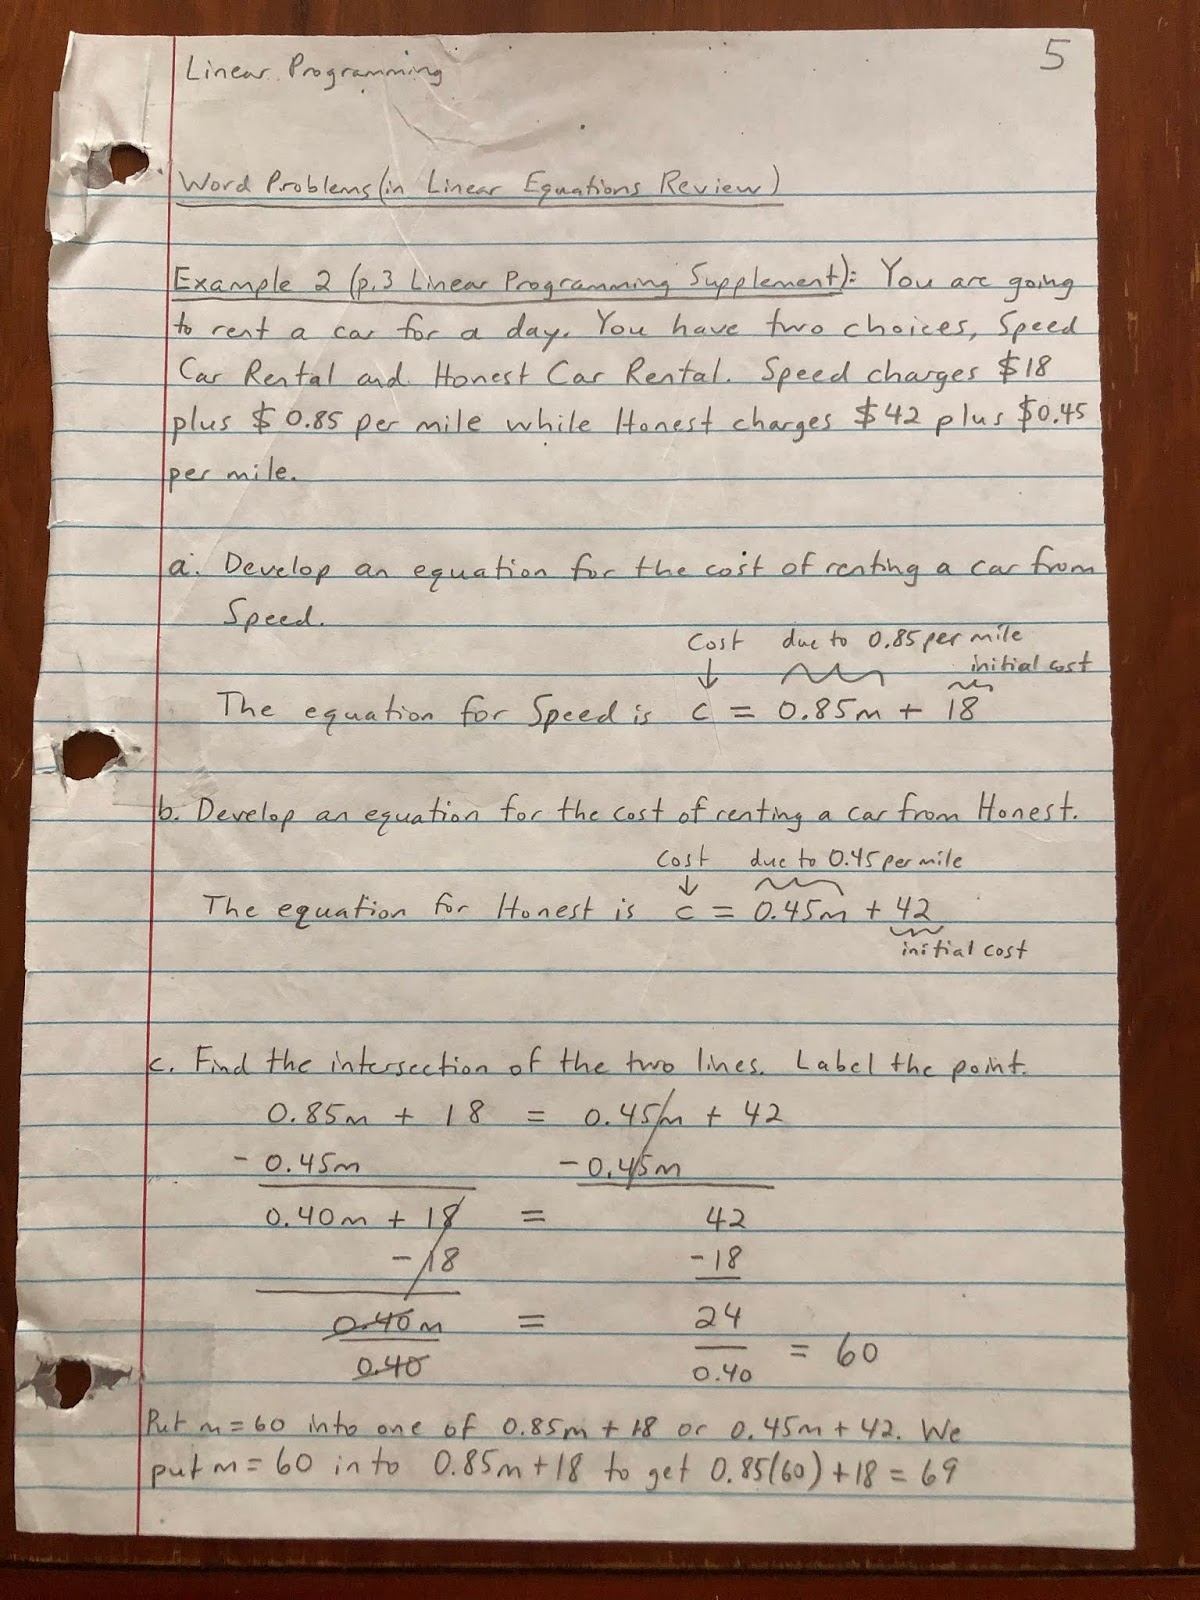 Linear Programming
5
Word Problems (in Linear Equations Review)
Example 2 (p.3 Linear Programming Supplement): You are going
to rent a car for a day. You have two choices, Speed
Car Rental and Honest Car Rental. Speed charges $18
plus $0.85 per mile while Honest charges $42 plus $0.45
per mile.
a. Develop an equation for the cost of renting a car from
Speed.
Cost due to 0.85 per mile
initial cost
The equation for Speed is c = 0.85m + 18
b. Develop an equation for the cost of renting a car from Honest.
Cost due to 0.45 per mile
The equation for Honest is c = 0.45m + 42
initial cost
c. Find the intersection of the two lines. Label the point.
0.85m + 18 = 0.45m + 42
- 0.45m - 0.45m
0.40m + 18 = 42
- 18 - 18
0.40m = 24
0.40 0.40 = 60
Put m = 60 into one of 0.85m + 18 or 0.45m + 42. We
put m = 60 into 0.85m + 18 to get 0.85(60) + 18 = 69